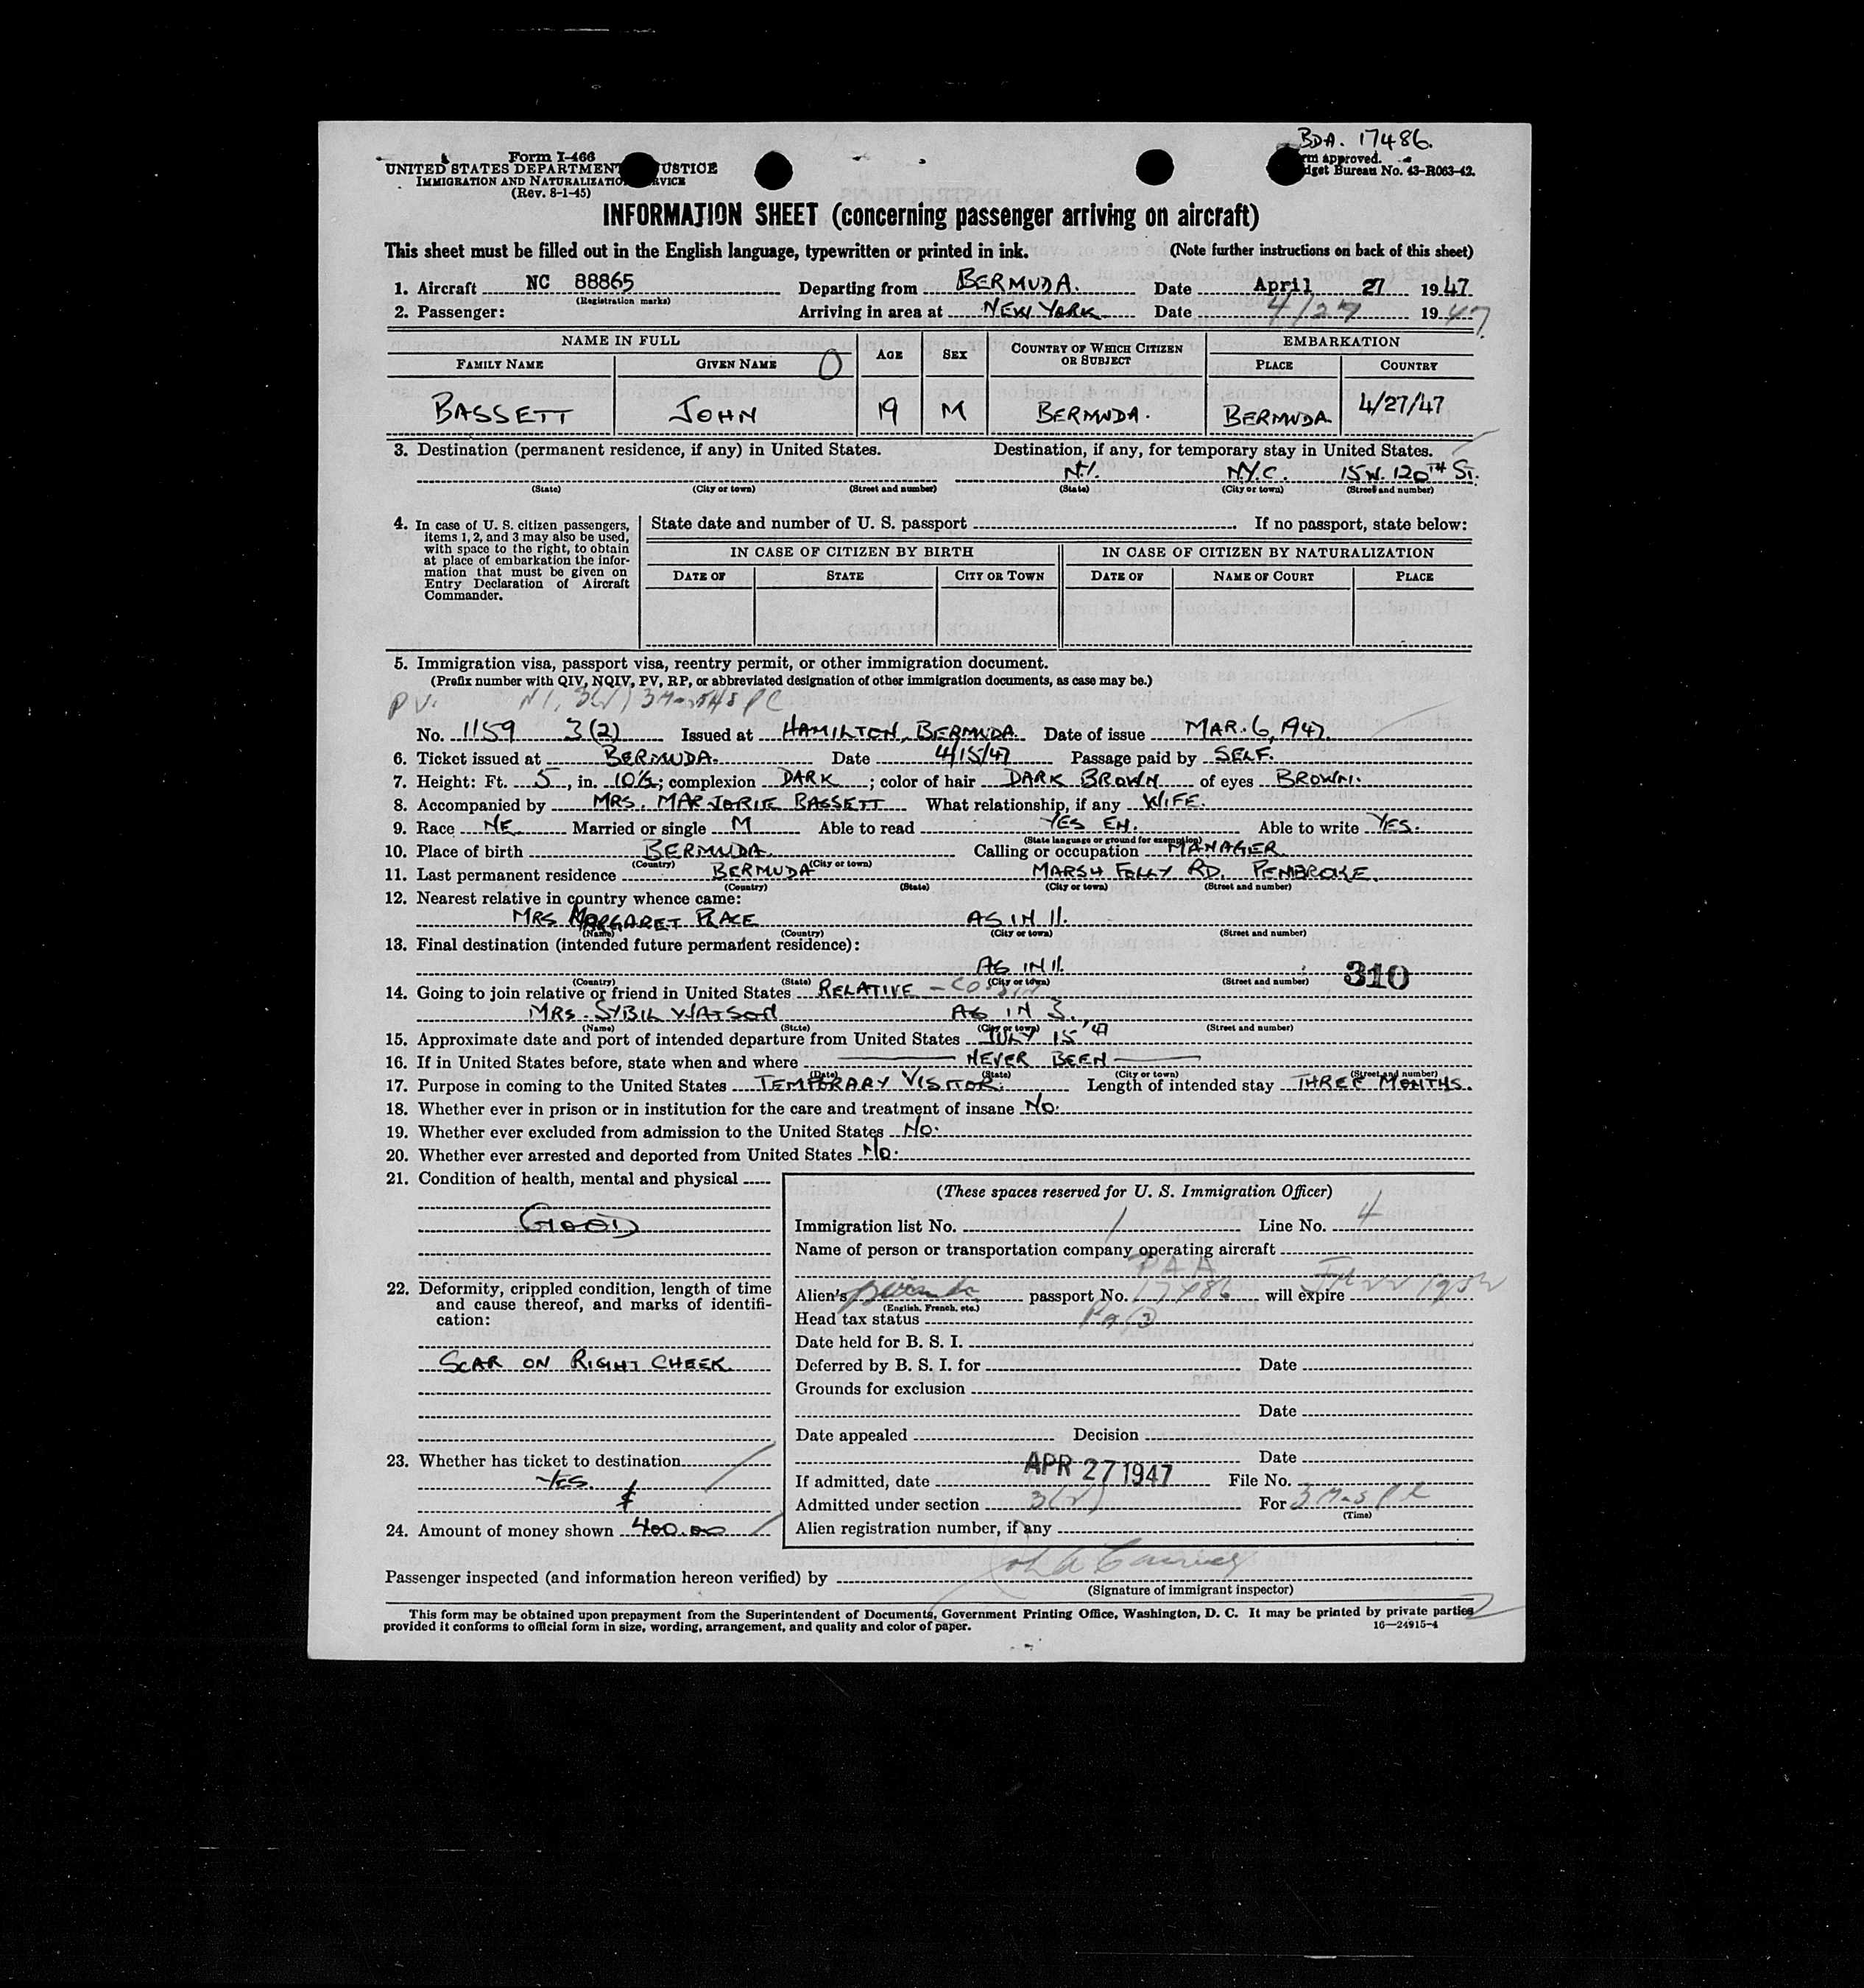 BDA. 17486.
Form I-466
UNITED STATES DEPARTMENT USTICE
IMMIGRATION AND NATURALIZATIO RVICE
(Rev. 8-1-45)
rm approved.
dget Bureau No. 43-R063-42.
INFORMATION SHEET (concerning passenger arriving on aircraft)
This sheet must be filled out in the English language, typewritten or printed in ink. (Note further instructions on back of this sheet)
1. Aircraft NC 88865 Departing from BERMUDA. Date April 27 1947
(Registration marks)
2. Passenger: Arriving in area at NEW YORK Date 4/27 1947
NAME IN FULL AGE SEX COUNTRY OF WHICH CITIZEN OR SUBJECT EMBARKATION
FAMILY NAME GIVEN NAME PLACE COUNTRY
BASSETT JOHN 19 M BERMUDA. BERMUDA 4/27/47
3. Destination (permanent residence, if any) in United States. Destination, if any, for temporary stay in United States.
N.Y. N.Y.C. 15 W. 120TH ST.
(State) (City or town) (Street and number) (State) (City or town) (Street and number)
4. In case of U. S. citizen passengers, items 1, 2, and 3 may also be used, with space to the right, to obtain at place of embarkation the information that must be given on Entry Declaration of Aircraft Commander.
State date and number of U. S. passport If no passport, state below:
IN CASE OF CITIZEN BY BIRTH IN CASE OF CITIZEN BY NATURALIZATION
DATE OF STATE CITY OR TOWN DATE OF NAME OF COURT PLACE
5. Immigration visa, passport visa, reentry permit, or other immigration document.
(Prefix number with QIV, NQIV, PV, RP, or abbreviated designation of other immigration documents, as case may be.)
PV.
No. 1159 3(2) Issued at HAMILTON, BERMUDA. Date of issue MAR. 6, 1947
6. Ticket issued at BERMUDA. Date 4/15/47 Passage paid by SELF.
7. Height: Ft. 5, in. 10½; complexion DARK; color of hair DARK BROWN of eyes BROWN.
8. Accompanied by MRS. MARJORIE BASSETT What relationship, if any WIFE.
9. Race NE Married or single M Able to read YES EN. Able to write YES.
(State language or ground for exemption)
10. Place of birth BERMUDA. Calling or occupation MANAGER
(Country) (City or town)
11. Last permanent residence BERMUDA MARSH FOLLY RD. PEMBROKE.
(Country) (State) (City or town) (Street and number)
12. Nearest relative in country whence came:
MRS MARGARET PLACE AS IN 11.
(Name) (Country) (City or town) (Street and number)
13. Final destination (intended future permanent residence):
AS IN 11. 310
(Country) (State) (City or town) (Street and number)
14. Going to join relative or friend in United States RELATIVE - COUSIN
MRS. SYBIL WATSON AS IN 3.
(Name) (State) (City or town) (Street and number)
15. Approximate date and port of intended departure from United States JULY 15 '47
16. If in United States before, state when and where NEVER BEEN
(Date) (State) (City or town) (Street and number)
17. Purpose in coming to the United States TEMPORARY VISITOR. Length of intended stay THREE MONTHS.
18. Whether ever in prison or in institution for the care and treatment of insane NO.
19. Whether ever excluded from admission to the United States NO.
20. Whether ever arrested and deported from United States NO.
21. Condition of health, mental and physical
GOOD
22. Deformity, crippled condition, length of time and cause thereof, and marks of identification:
SCAR ON RIGHT CHEEK.
23. Whether has ticket to destination
YES.
$
24. Amount of money shown 400.00
(These spaces reserved for U. S. Immigration Officer)
Immigration list No. 1 Line No. 4
Name of person or transportation company operating aircraft
PAA
Alien's passport No. 17486 will expire 1952
(English, French, etc.)
Head tax status
Date held for B. S. I.
Deferred by B. S. I. for Date
Grounds for exclusion
Date
Date appealed Decision
Date
If admitted, date APR 27 1947 File No.
Admitted under section 3(2) For 3 Mos
(Time)
Alien registration number, if any
Passenger inspected (and information hereon verified) by
(Signature of immigrant inspector)
This form may be obtained upon prepayment from the Superintendent of Documents, Government Printing Office, Washington, D. C. It may be printed by private parties
provided it conforms to official form in size, wording, arrangement, and quality and color of paper. 16—24915-4